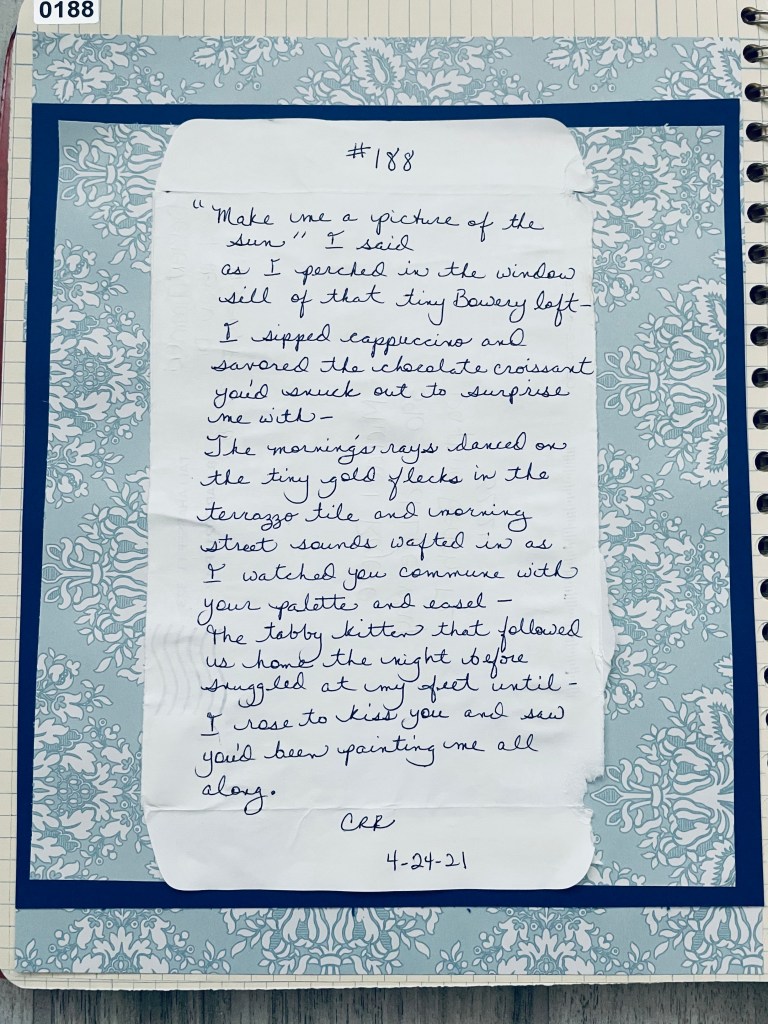 0188
#188
"Make me a picture of the
sun" I said
as I perched in the window
sill of that tiny Bowery loft-
I sipped cappuccino and
savored the chocolate croissant
you'd snuck out to surprise
me with-
The morning's rays danced on
the tiny gold flecks in the
terrazzo tile and morning
street sounds wafted in as
I watched you commune with
your palette and easel-
The tabby kitten that followed
us home the night before
snuggled at my feet until-
I rose to kiss you and saw
you'd been painting me all
along.
CRR
4-24-21